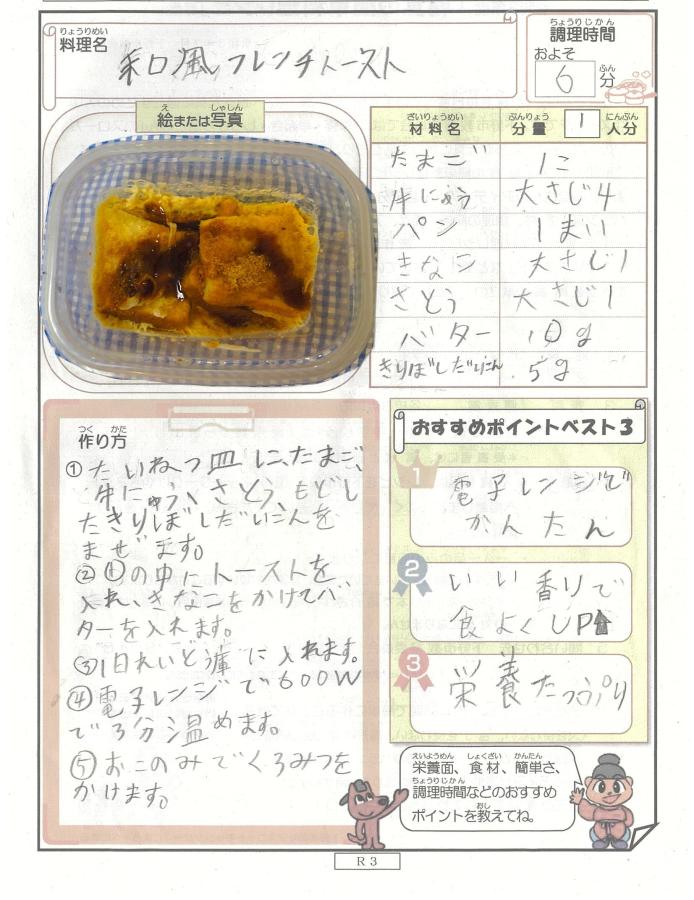 りょうりめい
料理名
和風フレンチトースト
ちょうりじかん
調理時間
およそ
6 ふん
分
え しゃしん
絵または写真
ざいりょうめい ぶんりょう にんぶん
材料名 分量 1 人分
たまご 1こ
牛にゅう 大さじ4
パン 1まい
きなこ 大さじ1
さとう 大さじ1
バター 10g
きりぼしだいこん 5g
つく かた
作り方
①たいねつ皿に、たまご、
牛にゅう、さとう、もどし
たきりぼしだいこんを
まぜます。
②①の中にトーストを
入れ、きなこをかけてバ
ターを入れます。
③1日れいぞう庫に入れます。
④電子レンジで600W
で3分温めます。
⑤おこのみでくろみつを
かけます。
おすすめポイントベスト3
1
電子レンジで
かんたん
2
いい香りで
食よくUP⬆
3
栄養たっぷり
えいようめん しょくざい かんたん
栄養面、食材、簡単さ、
ちょうりじかん
調理時間などのおすすめ
おし
ポイントを教えてね。
R3